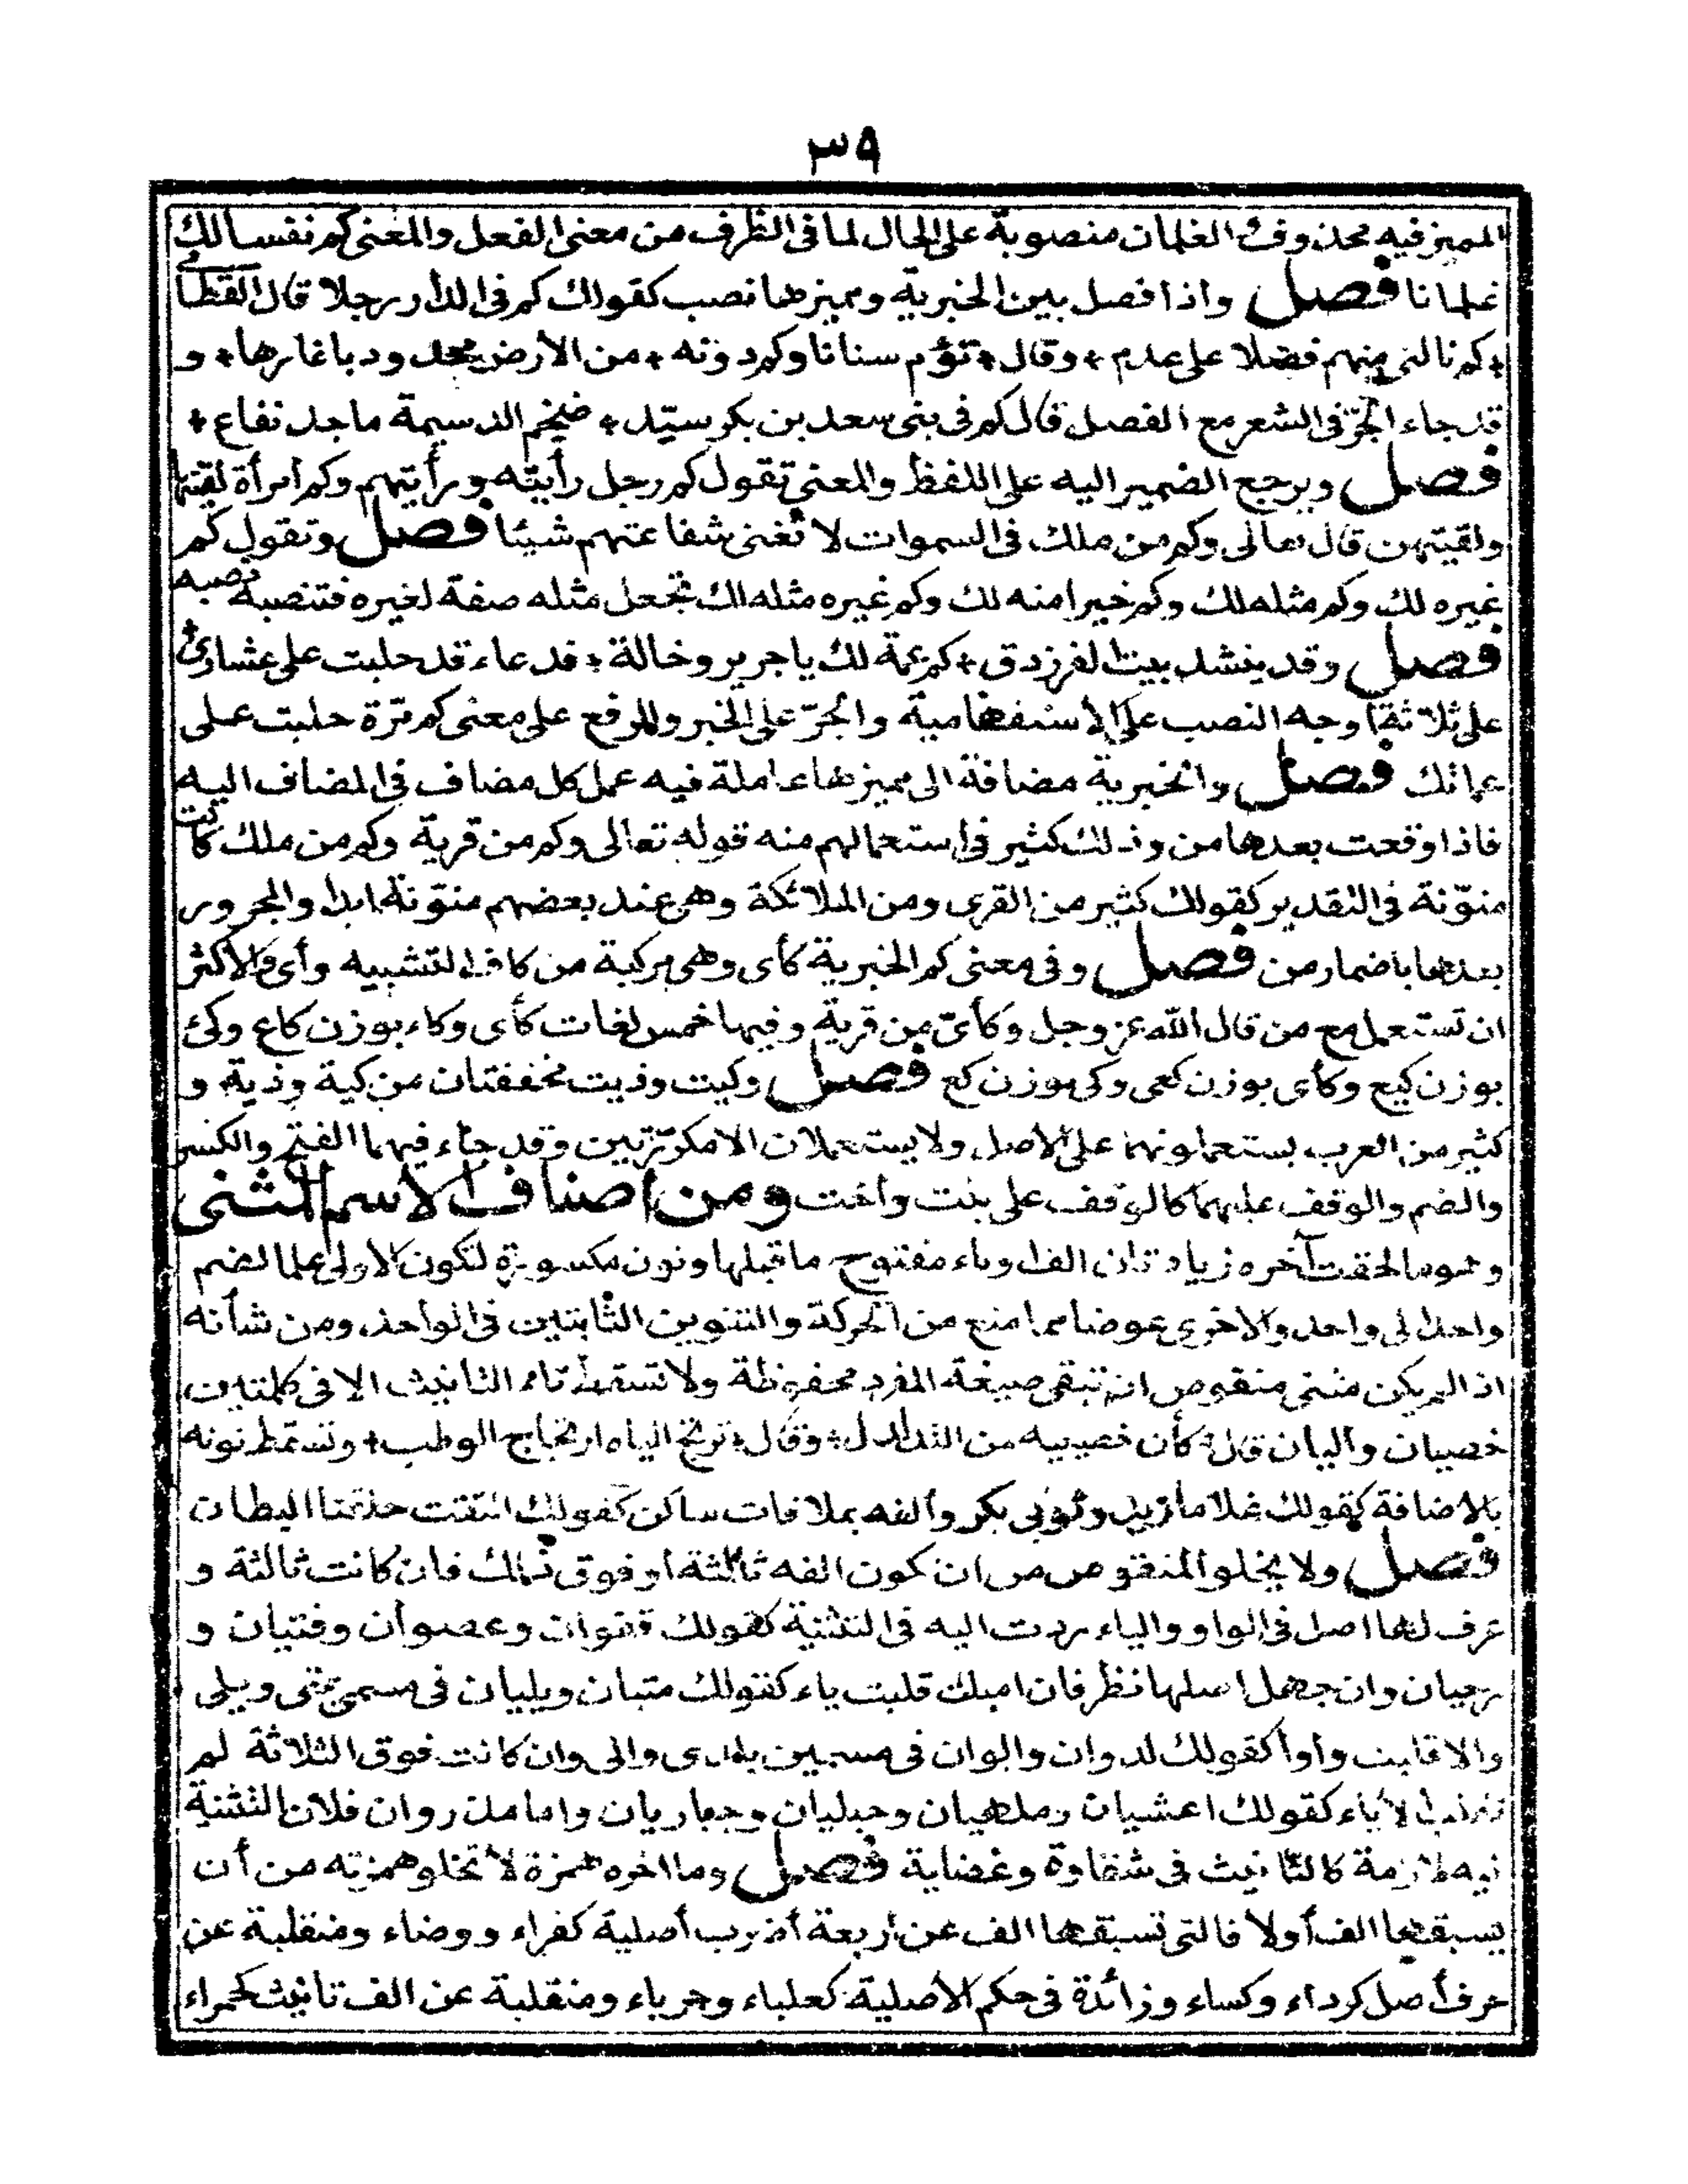 ٣٩
المميز فيه محذوف والغلمان منصوبة على الحال لما فى الظرف من معنى الفعل والمعنى كم نفسا لك
غلمانا فصل واذا فصل بين الخبرية ومميزها نصب كقولك كم فى الدار رجلا قال القطامى
٭ كم نالنى منهم فضلا على عدم ٭ وقال ٭ تؤم سنانا وكم دونه ٭ من الأرض محدودبا غارها ٭ و
قد جاء الجرّ فى الشعر مع الفصل قال كم فى بنى سعد بن بكر سيّد ٭ ضخم الدسيعة ماجد نفاع ٭
فصل ويرجع الضمير اليه على اللفظ والمعنى تقول كم رجل رأيته ورأيتهم وكم امرأة لقيتها
ولقيتهن قال تعالى وكم من ملك فى السموات لا تغنى شفاعتهم شيئا فصل وتقول كم
غيره لك وكم مثله لك وكم خيرا منه لك وكم غيره مثله لك تجعل مثله صفة لغيره فتنصبه نصبه
فصل وقد ينشد بيت الفرزدق ٭ كم عمة لك يا جرير وخالة ٭ فدعاء قد حلبت على عشارى ٭
على ثلاثة أوجه النصب على الاستفهامية والجرّ على الخبر والرفع على معنى كم مرّة حلبت على
عماتك فصل والخبرية مضافة الى مميزها عاملة فيه عمل كل مضاف فى المضاف اليه
فاذا وقعت بعدها من وذلك كثير فى استعمالهم منه قوله تعالى وكم من قرية وكم من ملك كانت
منوّنة فى التقدير كقولك كثير من القرى ومن الملائكة وهى عند بعضهم منوّنة ابدا والمجرور
بعدها باضمار من فصل وفى معنى كم الخبرية كأى وهى مركبة من كاف التشبيه وأى والاكثر
ان تستعمل مع من قال الله عز وجل وكأىّ من قرية وفيها خمس لغات كأى وكاء بوزن كاع وكئ
بوزن كيع وكأى بوزن كعى وكى بوزن كع فصل وكيت وذيت مخففتان من كية وذية و
كثير من العرب يستعملونهما على الاصل ولا يستعملان الا مكرّرتين وقد جاء فيهما الفتح والكسر
والضم والوقف عليهما كالوقف على بنت واخت ومن اصناف الاسم المثنى
وهو ما لحقت آخره زيادتان الف او ياء مفتوح ما قبلها ونون مكسورة لتكون الاولى علما لضم
واحد الى واحد والاخرى عوضا مما منع من الحركة والتنوين الثابتين فى الواحد ومن شأنه
اذا لم يكن مثنى منقوص ان تبقى صيغة المفرد محفوظة ولا تسقط تاء التانيث الا فى كلمتين
خصيان واليان قال ٭ كأن خصييه من التدلدل ٭ وقال ٭ ترتج الياه ارتجاج الوطب ٭ وتسقط نونه
بالاضافة كقولك غلاما زيد وثوبى بكر وألفه بملاقات ساكن كقولك التقت حلقتا البطان
فصل ولا يخلو المنقوص من ان تكون الفه ثالثة او فوق ذلك فان كانت ثالثة و
عرف لها اصل فى الواو والياء ردت اليه فى التثنية كقولك قفوان وعصوان وفتيان و
رحيان وان جهل اصلها نظر فان اميلت قلبت ياء كقولك متيان وبليان فى مسمى بمتى وبلى
والا قلبت واوا كقولك لدوان والوان فى مسميين بلدى والى وان كانت فوق الثلاثة لم
تقلب الا ياء كقولك اعشيان وملهيان وحبليان وحباريان واما مذروان فلان التثنية
فيه لازمة كالتانيث فى شقاوة وعضاية فصل وما اخره همزة لا تخلو همزته من أن
يسبقها الف أولا فالتى تسبقها الف عن أربعة أضرب أصلية كقراء ووضاء ومنقلبة عن
حرف أصل كرداء وكساء وزائدة فى حكم الأصلية كعلباء وحرباء ومنقلبة عن الف تانيث كحمراء